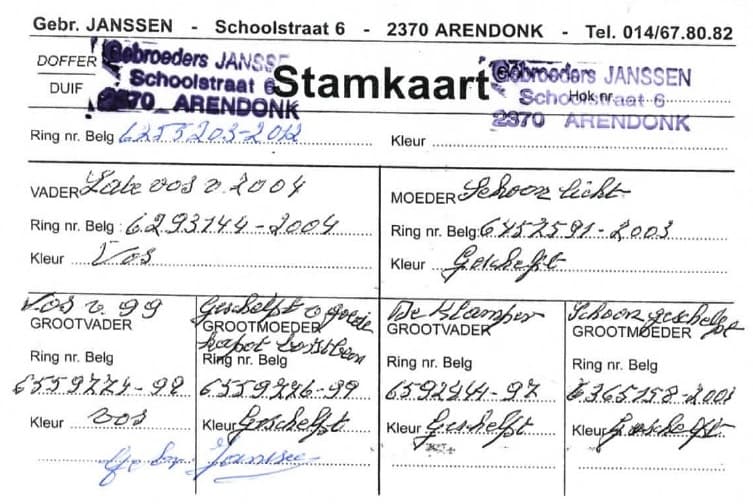 Gebr. JANSSEN - Schoolstraat 6 - 2370 ARENDONK - Tel. 014/67.80.82
DOFFER
DUIF
Gebroeders JANSSEN
Schoolstraat 6
2370 ARENDONK
Stamkaart
Gebroeders JANSSEN
Hok nr.
Schoolstraat 6
2370 ARENDONK
Ring nr. Belg 6255203-2012 Kleur
VADER Late vos v. 2004
Ring nr. Belg : 6293144-2004
Kleur Vos
MOEDER Schoon licht
Ring nr. Belg: 6457591-2003
Kleur Geschelpt
Vos v. 99
GROOTVADER
Ring nr. Belg
Kleur vos
Geschelpt v goeie
GROOTMOEDER
kapot
Ring nr. Belg
Kleur Geschelpt
De Klamper
GROOTVADER
Ring nr. Belg
6592444-97
Kleur Geschelpt
Schoon geschelpt
GROOTMOEDER
Ring nr. Belg
6365158-2001
Kleur Geschelpt
Janssen